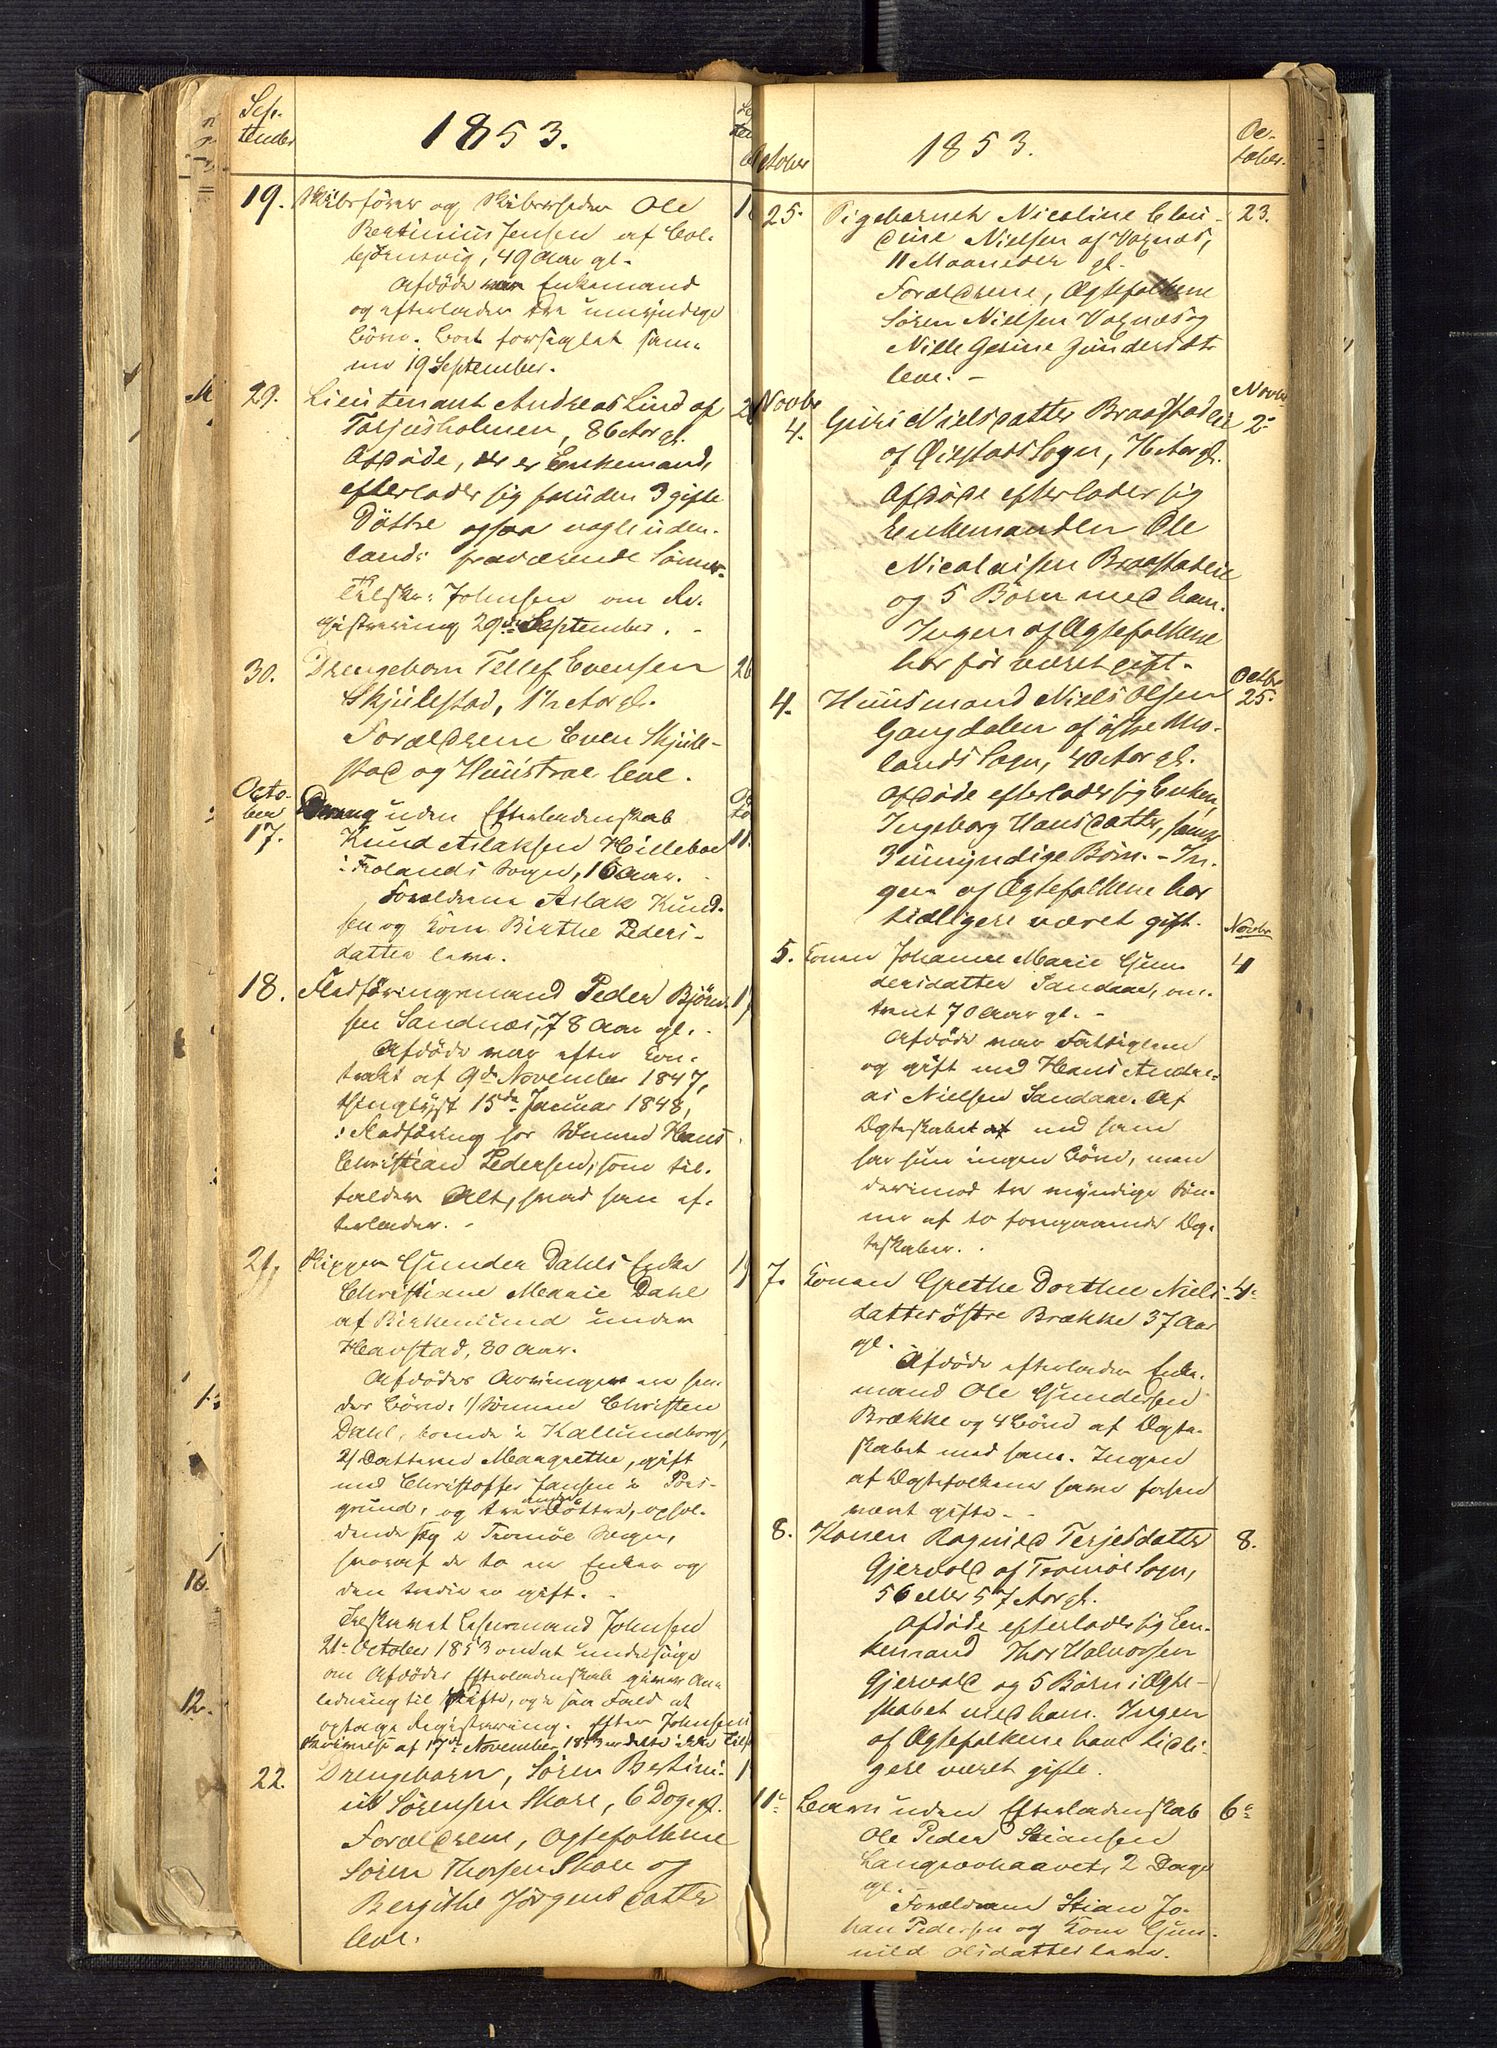 Sep-
tember
1853.
19. Skibsfører og Skibsreder Ole
Bertinius Jensen af Col-
bjørnsvig, 49 Aar gl.
Afdøde var Enkemand
og efterlader tre umyndige
Børn. Boet forseglet sam-
me 19 September.
29. Lieutenant Andreas Lind af
Torjusholmen, 86 Aar gl.
Afdøde, der er Enkemand,
efterlader sig foruden 3 gifte
Døttre ogsaa nogle uden-
lands fraværende Sønner.
Tilskr. Johnsen om Re-
gistrering 29de September. -
30. Drengebarn Tellef Evensen
Skjulestad, 1 1/2 Aar gl.
Forældrene Even Skjule-
stad og Huustroe leve.
Octo-
ber
17. Dreng uden Efterladenskab
Knud Aslaksen Hillebo
i Frolands Sogn, 16 Aar.
Forældrene Aslak Knud-
sen og Kone Birthe Peders-
datter leve.
18. Fladføringsmand Peder Bjørn-
sen Sandnæs, 78 Aar gl. -
Afdøde var efter Con-
trakt af 9de November 1847,
thinglyst 15de Januar 1848,
i Fladføring hos Sønnen Hans
Christian Pedersen, som til-
falder Alt, hvad han ef-
terlader. -
21. Skipper Gunder Dahls Enke
Christiane Marie Dahl
af Birkenlund under
Havstad, 80 Aar.
Afdødes Arvinger ere hen-
des Børn: 1/ Sønnen Christen
Dahl, boende i Kallundborg,
2/ Datteren Margrethe, gift
med Christoffer Jansen i Pors-
grund, og tre andre Døttre, ophol-
dende sig i Tromøe Sogn,
hvoraf de to ere Enker og
den tredie er gift. -
Tilskrevet Lensmand Johnsen
21 October 1853 om at undersøge
om Afdødes Efterladenskab giver An-
ledning til Skifte, og i saa Fald at
optage Registrering. Efter Johnsens
Skrivelse af 17de November 1853 er dette ikke Tilf
22. Drengebarn, Søren Bertini-
us Sørensen Skare, 6 Dage gl.
Forældrene, Ægtefolkene
Søren Thorsen Skare og
Bergithe Jørgensdatter
leve.
October
1853.
Oc-
tober.
25. Pigebarnet Nicoline Clau- 23.
dine Nielsen af Vognæs,
11 Maaneder gl.
Forældrene, Ægtefolkene
Søren Nielsen Vognæs og
Nille Gesine Gundersdt
leve. -
Novbr Novbr
4. Guri Nielsdatter Braastadlie 2
af Øiestads Sogn, 76 Aar gl.
Afdøde efterlader sig
Enkemanden Ole
Nicolaisen Braastadlie
og 5 Børn med ham.
Ingen af Ægtefolkene
har før været gift.
Octbr
4. Huusmand Niels Olsen 25.
Gangdalen af østre Mo-
lands Sogn, 40 Aar gl.
Afdøde efterlader sig Enken,
Ingeborg Hansdatter, samt
3 umyndige Børn. - In-
gen af Ægtefolkene har
tidligere været gift.
Novbr
5. Konen Johanne Marie Gun- 4
dersdatter Sandaae, om-
trent 70 Aar gl. -
Afdøde var Fattiglem
og gift med Hans Andre-
as Nielsen Sandaae. Af
Ægteskabet med ham
har hun ingen Børn, men
derimod tre myndige Søn-
ner af to foregaaende Æg-
teskaber.
7. Konen Grethe Dorthea Niels- 4
datter østre Brække 37 Aar
gl.
Afdøde efterlader Enke-
mand Ole Gundersen
Brække og 4 Børn af Ægte-
skabet med ham. Ingen
af Ægtefolkene have forhen
været gifte. -
8. Konen Ragnild Terjesdatter 8.
Gjervold af Tromøe Sogn,
56 eller 57 Aar gl.
Afdøde efterlader sig En-
kemand Thor Halvorsen
Gjervold og 5 Børn i Ægte-
skabet med ham. Ingen
af Ægtefolkene have tidli-
gere været gifte.
11 Barn uden Efterladenskab 6
Ole Peder Stiansen
Langsævhaavet, 2 Dage
gl.
Forældrene Stian Jo-
han Pedersen og Kone Gun-
nild Olsdatter leve.